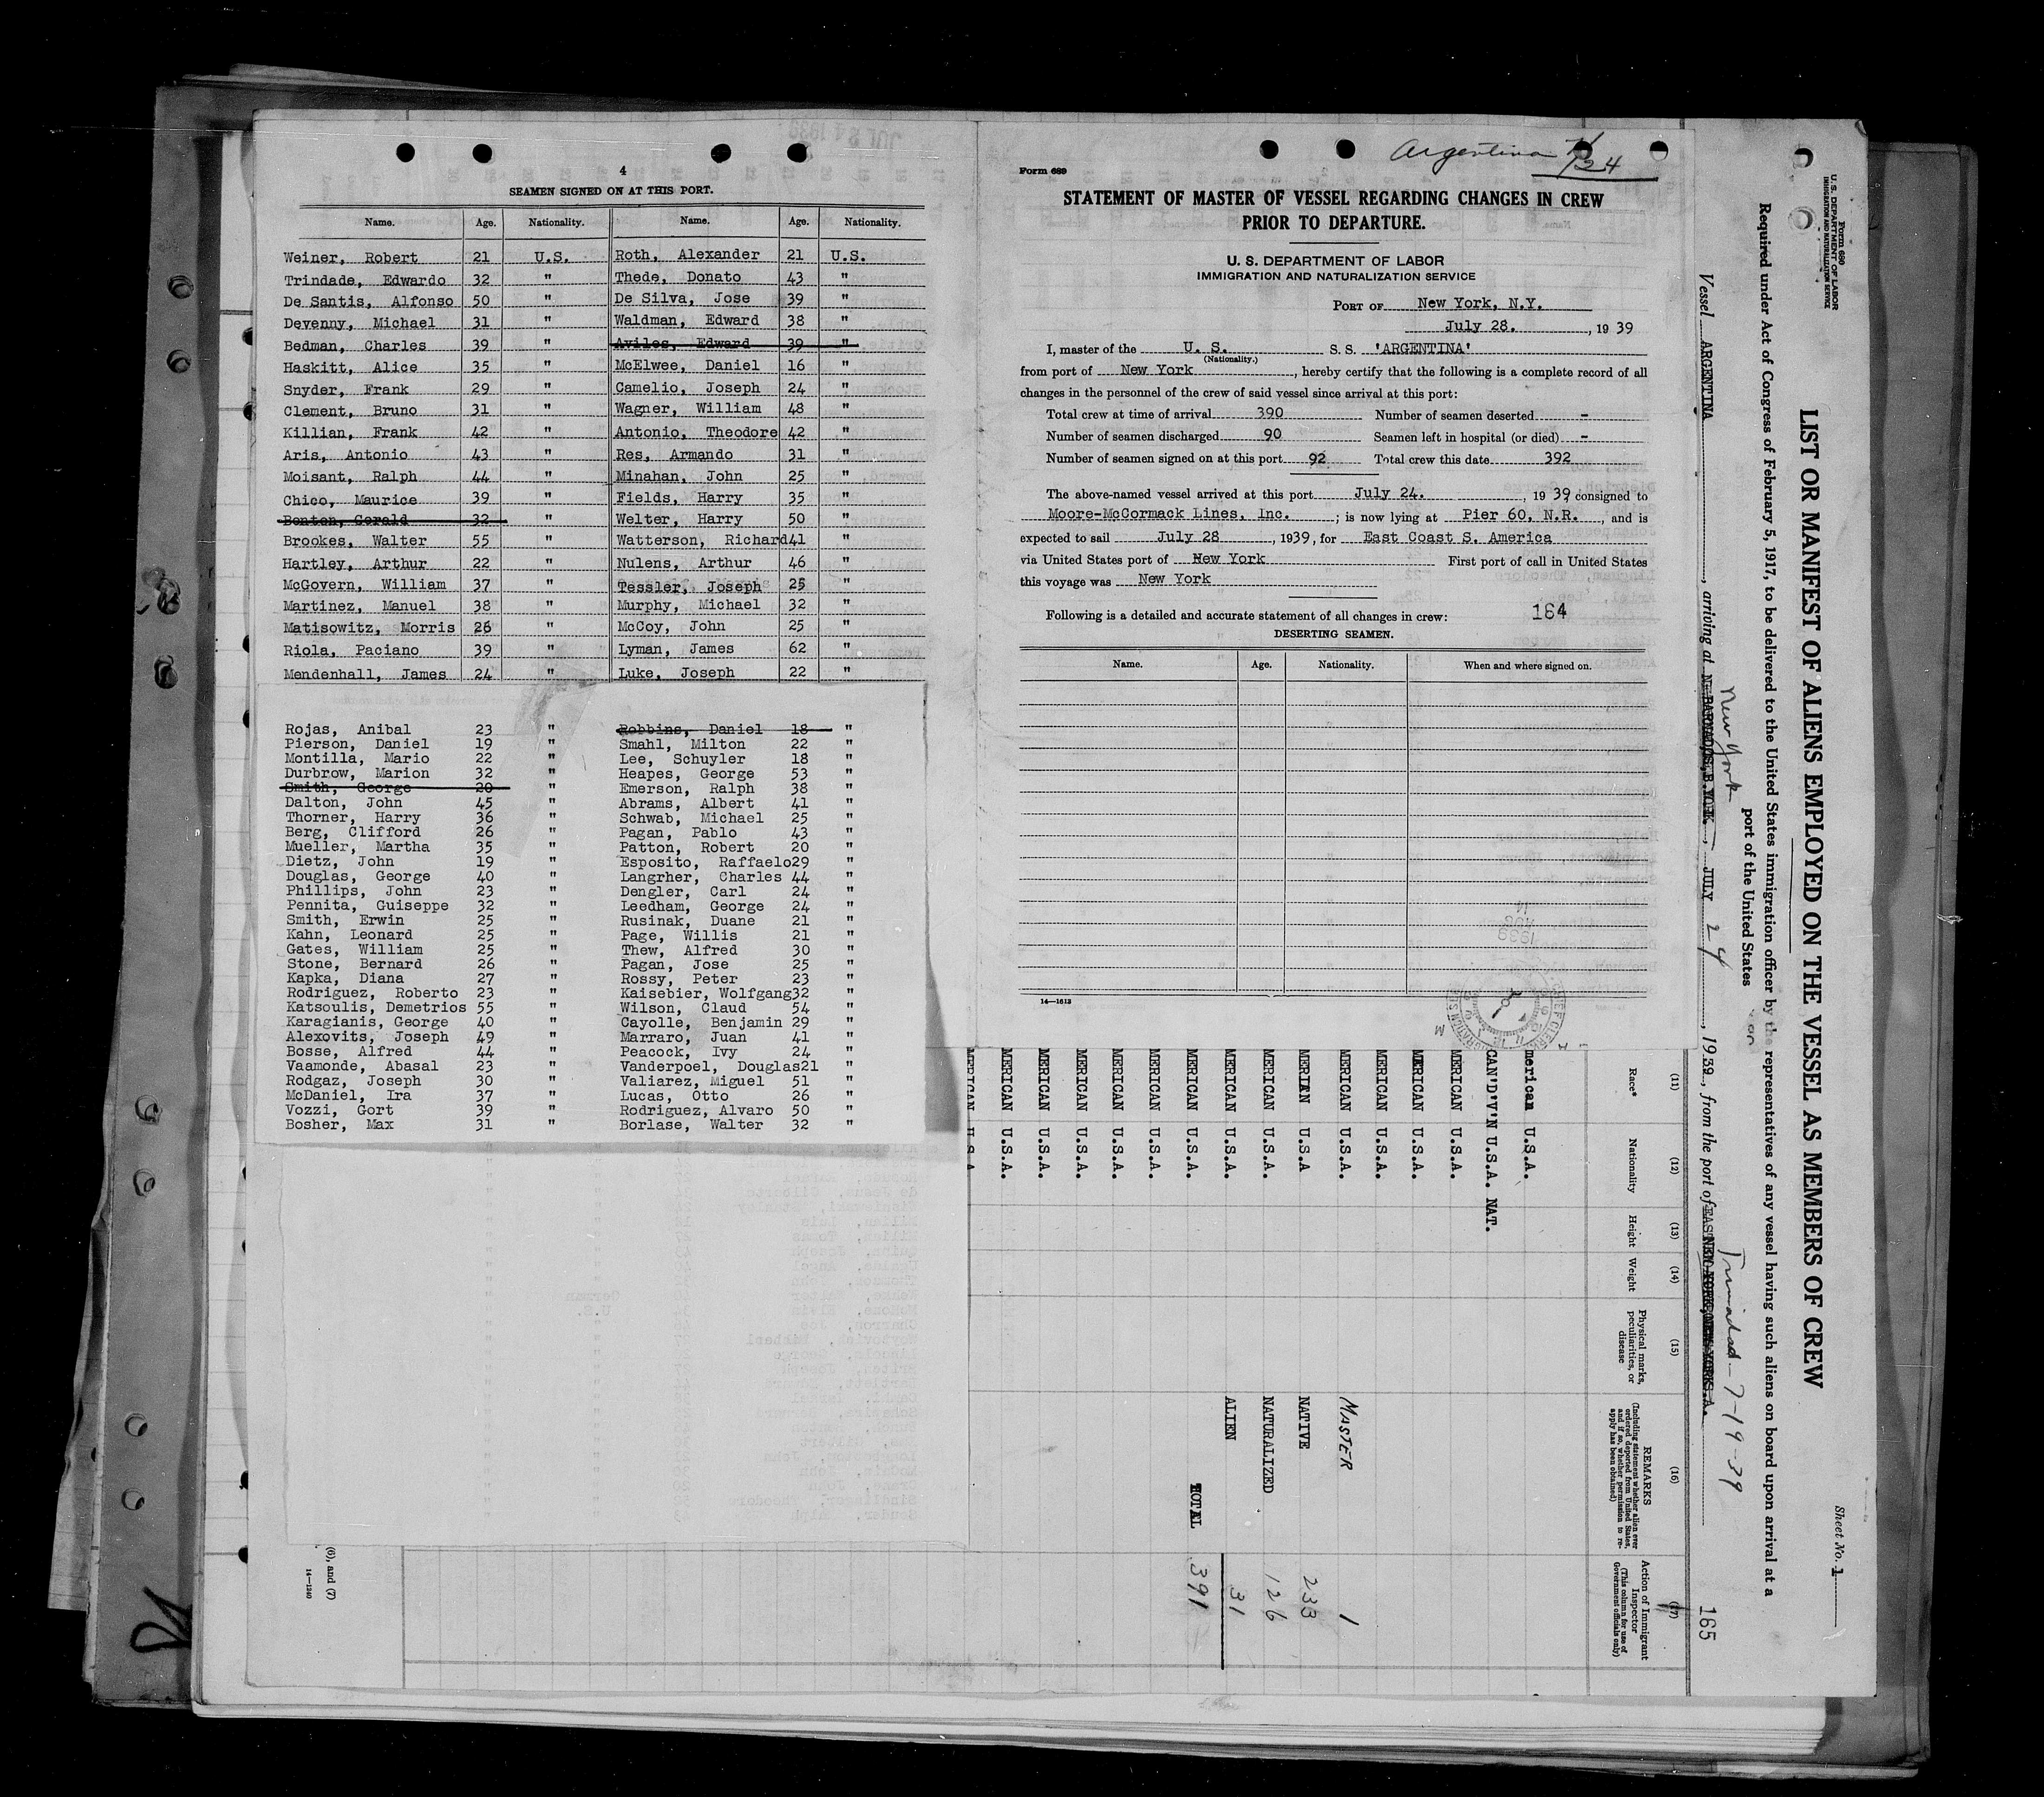 4
SEAMEN SIGNED ON AT THIS PORT.
Name. Age. Nationality. Name. Age. Nationality.
Weiner, Robert 21 U.S. Roth, Alexander 21 U.S.
Trindade, Edwardo 32 " Thede, Donato 43 "
De Santis, Alfonso 50 " De Silva, Jose 39 "
Devenny, Michael 31 " Waldman, Edward 38 "
Bedman, Charles 39 " Aviles, Edward 39 "
Haskitt, Alice 35 " McElwee, Daniel 16 "
Snyder, Frank 29 " Camelio, Joseph 24 "
Clement, Bruno 31 " Wagner, William 48 "
Killian, Frank 42 " Antonio, Theodore 42 "
Aris, Antonio 43 " Res, Armando 31 "
Moisant, Ralph 44 " Minahan, John 25 "
Chico, Maurice 39 " Fields, Harry 35 "
Benton, Gerald 32 " Welter, Harry 50 "
Brookes, Walter 55 " Watterson, Richard 41 "
Hartley, Arthur 22 " Nulens, Arthur 46 "
McGovern, William 37 " Tessler, Joseph 25 "
Martinez, Manuel 38 " Murphy, Michael 32 "
Matisowitz, Morris 26 " McCoy, John 25 "
Riola, Paciano 39 " Lyman, James 62 "
Mendenhall, James 24 " Luke, Joseph 22 "
Rojas, Anibal 23 " Robbins, Daniel 18 "
Pierson, Daniel 19 " Smahl, Milton 22 "
Montilla, Mario 22 " Lee, Schuyler 18 "
Durbrow, Marion 32 " Heapes, George 53 "
Smith, George 20 " Emerson, Ralph 38 "
Dalton, John 45 " Abrams, Albert 41 "
Thorner, Harry 36 " Schwab, Michael 25 "
Berg, Clifford 26 " Pagan, Pablo 43 "
Mueller, Martha 35 " Patton, Robert 20 "
Dietz, John 19 " Esposito, Raffaelo 29 "
Douglas, George 40 " Langrher, Charles 44 "
Phillips, John 23 " Dengler, Carl 24 "
Pennita, Guiseppe 32 " Leedham, George 24 "
Smith, Erwin 25 " Rusinak, Duane 21 "
Kahn, Leonard 25 " Page, Willis 21 "
Gates, William 25 " Thew, Alfred 30 "
Stone, Bernard 26 " Pagan, Jose 25 "
Kapka, Diana 27 " Rossy, Peter 23 "
Rodriguez, Roberto 23 " Kaisebier, Wolfgang 32 "
Katsoulis, Demetrios 55 " Wilson, Claud 54 "
Karagianis, George 40 " Cayolle, Benjamin 29 "
Alexovits, Joseph 49 " Marraro, Juan 41 "
Bosse, Alfred 44 " Peacock, Ivy 24 "
Vaamonde, Abasal 23 " Vanderpoel, Douglas 21 "
Rodgaz, Joseph 30 " Valiarez, Miguel 51 "
McDaniel, Ira 37 " Lucas, Otto 26 "
Vozzi, Gort 39 " Rodriguez, Alvaro 50 "
Bosher, Max 31 " Borlase, Walter 32 "
(6), and (7)
14—1240
Argentina 7/24
Form 689
STATEMENT OF MASTER OF VESSEL REGARDING CHANGES IN CREW
PRIOR TO DEPARTURE.
U. S. DEPARTMENT OF LABOR
IMMIGRATION AND NATURALIZATION SERVICE
PORT OF New York, N.Y.
July 28. , 19 39
I, master of the U. S. S. S. 'ARGENTINA'
(Nationality.)
from port of New York , hereby certify that the following is a complete record of all
changes in the personnel of the crew of said vessel since arrival at this port:
Total crew at time of arrival 390 Number of seamen deserted -
Number of seamen discharged 90 Seamen left in hospital (or died) -
Number of seamen signed on at this port 92 Total crew this date 392
The above-named vessel arrived at this port July 24. , 19 39, consigned to
Moore-McCormack Lines, Inc. ; is now lying at Pier 60, N.R. , and is
expected to sail July 28 , 1939, for East Coast S. America
via United States port of New York First port of call in United States
this voyage was New York
Following is a detailed and accurate statement of all changes in crew: 164
DESERTING SEAMEN.
Name. Age. Nationality. When and where signed on.
14—1613
Form 680
U. S. DEPARTMENT OF LABOR
IMMIGRATION AND NATURALIZATION SERVICE
Sheet No. 1
LIST OR MANIFEST OF ALIENS EMPLOYED ON THE VESSEL AS MEMBERS OF CREW
Required under Act of Congress of February 5, 1917, to be delivered to the United States immigration officer by the representatives of any vessel having such aliens on board upon arrival at a
port of the United States
New York Trinidad - 7-19-39
Vessel ARGENTINA , arriving at , JULY 24 , 1939 , from the port of
165
(11) (12) (13) (14) (15) (16) (17)
Race* Nationality Height Weight Physical marks, peculiarities, or disease REMARKS (Including statement whether alien ever ordered deported from United States, and if so, whether permission to reapply has been obtained) Action of Immigrant Inspector (This column for use of Government officials only)
merican U.S.A.
CAN'D'V'N U.S.A. NAT.
MERICAN U.S.A.
MERICAN U.S.A.
MERICAN U.S.A.
MERICAN U.S.A. MASTER 1
MERIAN U.S.A NATIVE 233
MERICAN U.S.A. NATURALIZED 126
MERICAN U.S.A. ALIEN 31
MERICAN U.S.A. TOTAL 391
MERICAN U.S.A.
MERICAN U.S.A.
MERICAN U.S.A.
MERICAN U.S.A.
MERICAN U.S.A.
MERICAN U.S.A